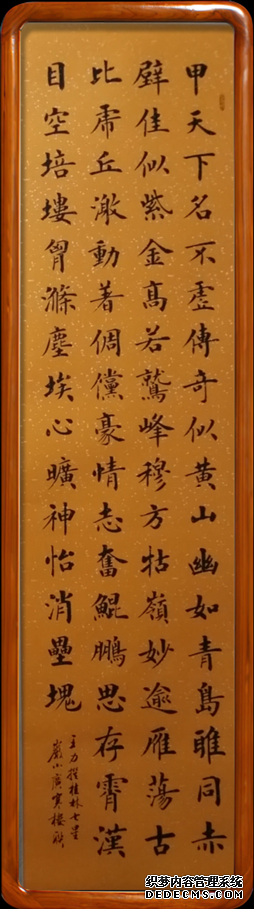 甲天下名不虛傳奇似黄山幽如青島雅同赤
壁佳似紫金髙若鷲峰穆方牯嶺妙逾雁蕩古
比虎丘激動著倜儻豪情志奮鯤鵬思存霄漢
目空培塿胷滌塵埃心曠神怡消壘塊
王力撰桂林七星
巖小廣寒樓联
织梦内容管理系统
DEDECMS.COM